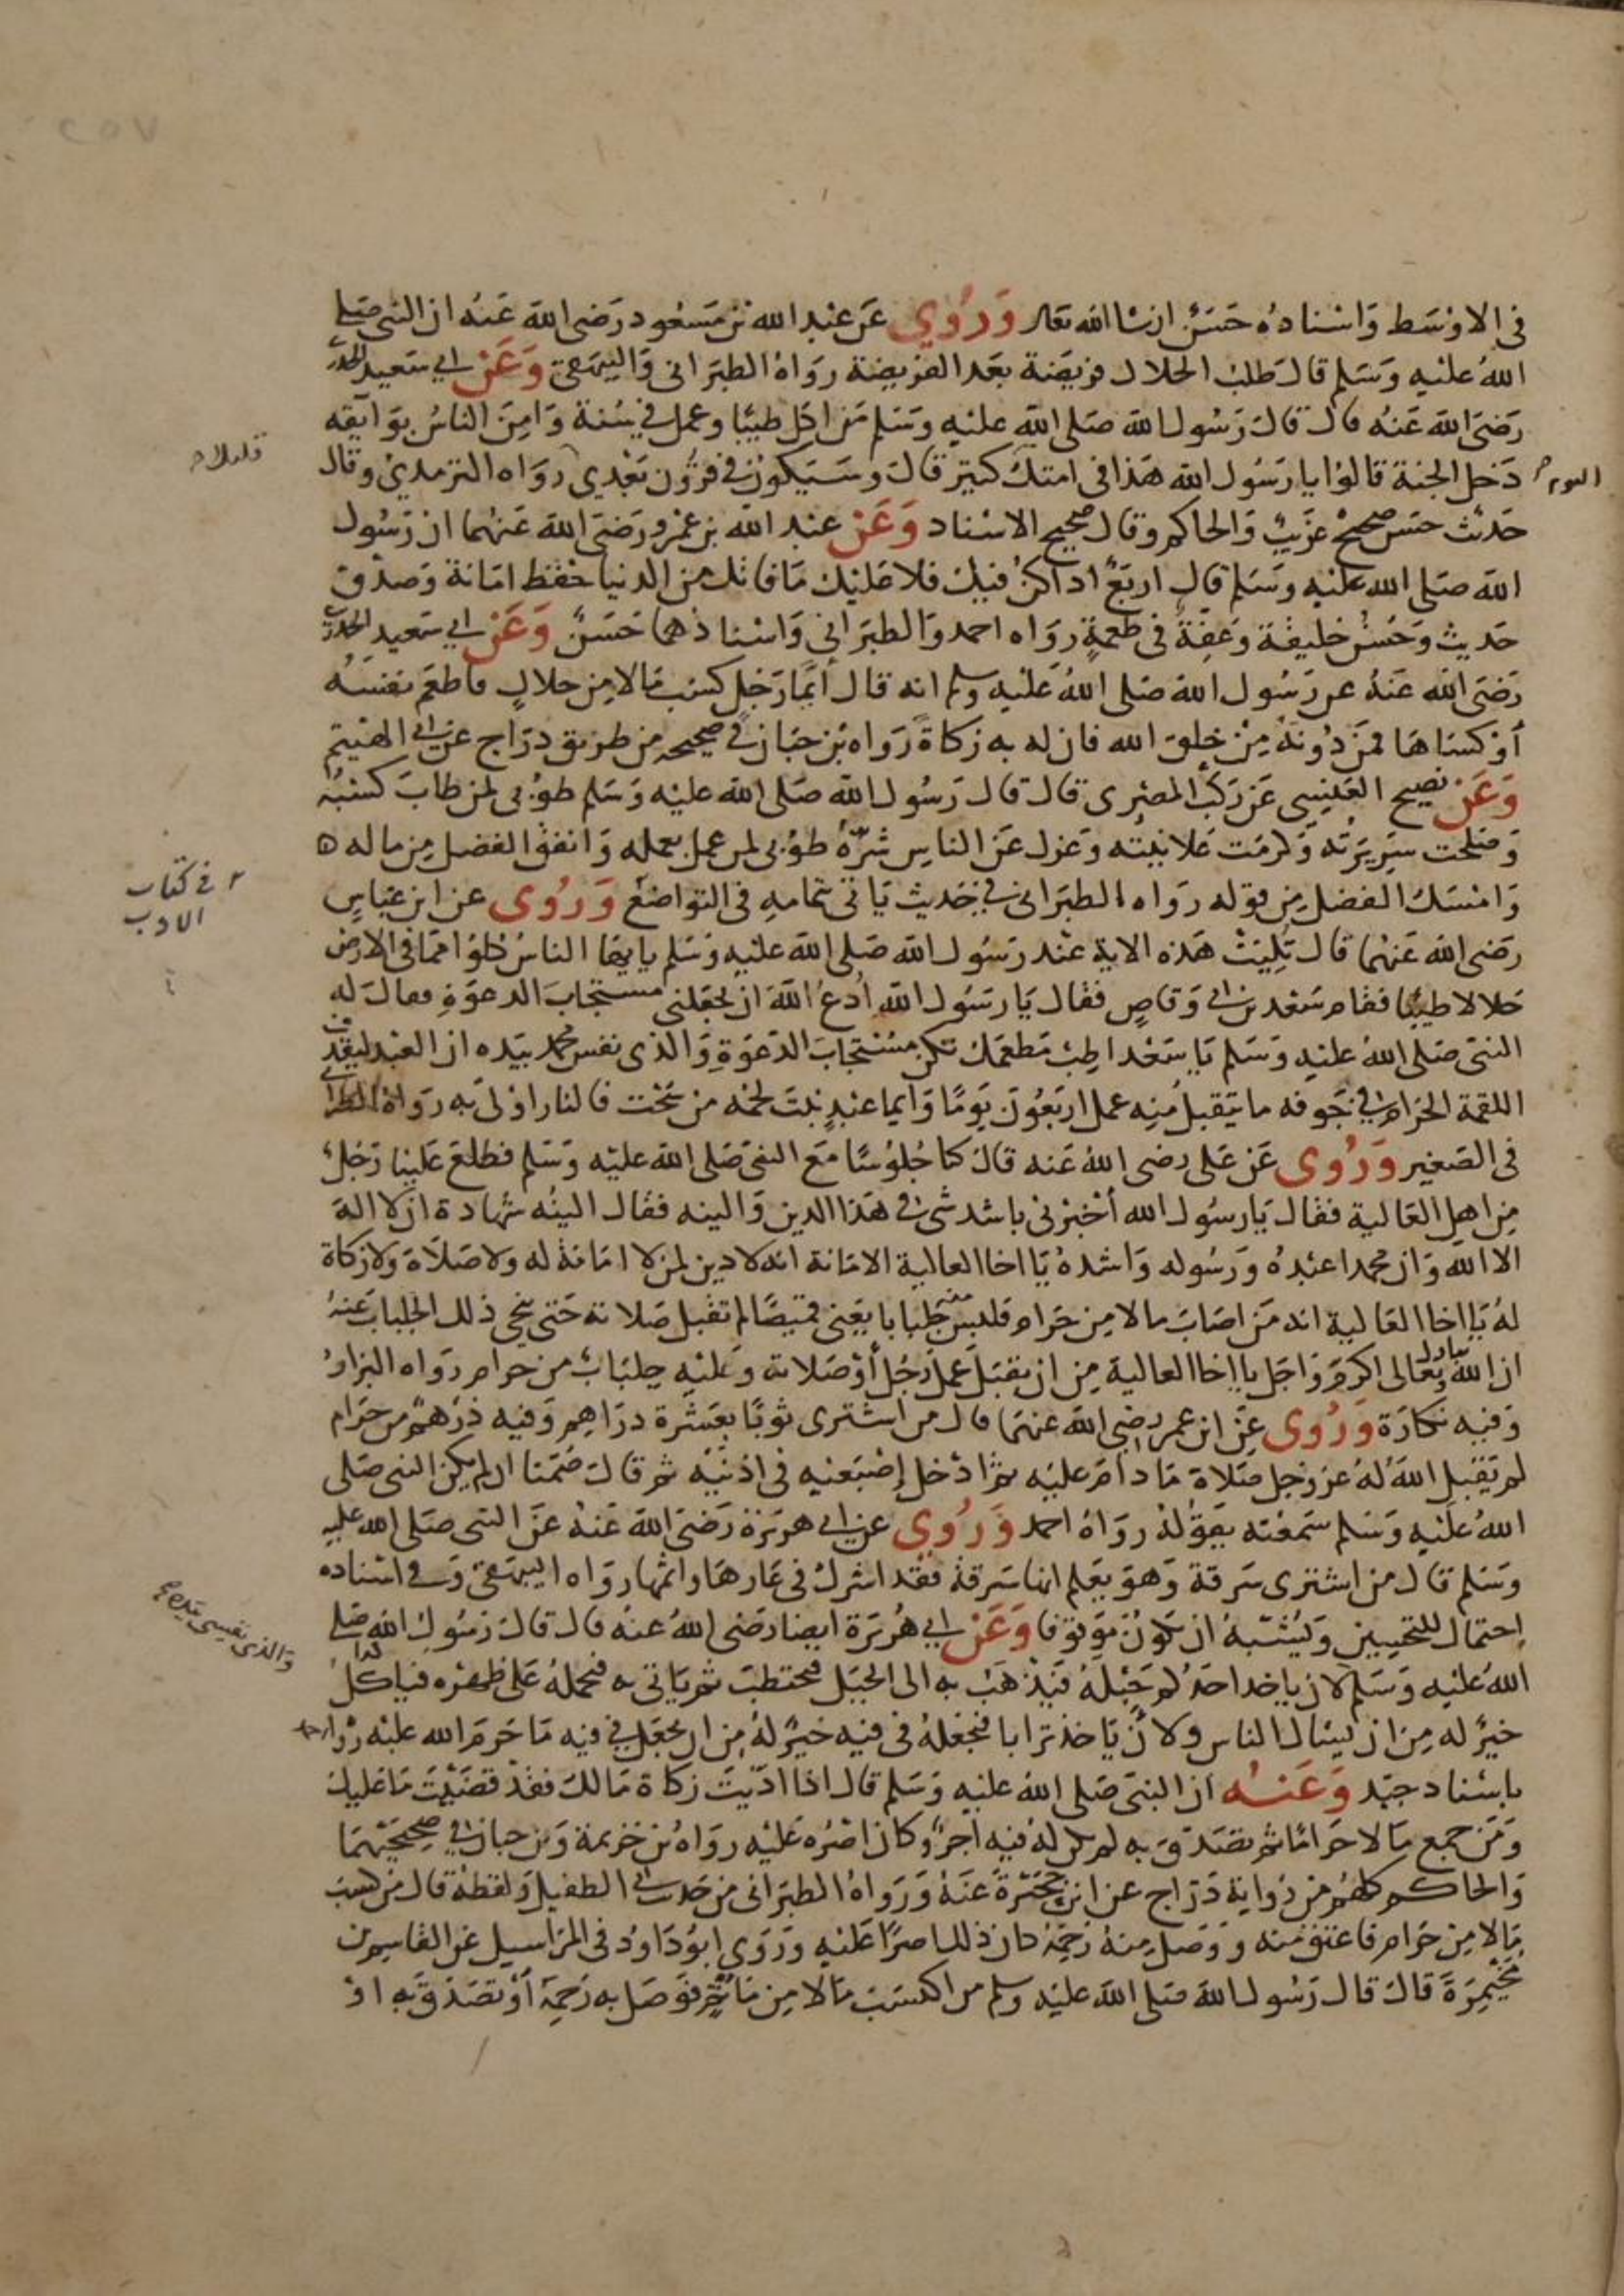 في الاوسط واسناده حسن ان شا الله تعالى وروي عن عبد الله بن مسعود رضي الله عنه ان النبي صلى
الله عليه وسلم قال طلب الحلال فريضة بعد الفريضة رواه الطبراني والبيهقي وعن ابي سعيد الخدري
رضي الله عنه قال قال رسول الله صلى الله عليه وسلم من اكل طيبا وعمل في سنة وامن الناس بوايقه
دخل الجنة قالوا يا رسول الله هذا في امتك كثير قال وسيكون في قرون بعدي رواه الترمذي وقال
اليوم
حديث حسن صحيح غريب والحاكم وقال صحيح الاسناد وعن عبد الله بن عمرو رضي الله عنهما ان رسول
الله صلى الله عليه وسلم قال اربع اذا كن فيك فلا عليك ما فاتك من الدنيا حفظ امانة وصدق
حديث وحسن خليقة وعفة في طعمة رواه احمد والطبراني واسنادهما حسن وعن ابي سعيد الخدري
رضي الله عنه عن رسول الله صلى الله عليه وسلم انه قال ايما رجل كسب مالا من حلال فاطعم نفسه
أو كساها فمن دونه من خلق الله فان له به زكاة رواه بن حبان في صحيحه من طريق دراج عن ابي الهيثم
وعن نصيح العنسي عن ركب المصري قال قال رسول الله صلى الله عليه وسلم طوبى لمن طاب كسبه
وصلحت سريرته وكرمت علانيته وعزل عن الناس شره طوبى لمن عمل بعمله وانفق الفضل من ماله ه
وامسك الفضل من قوله رواه الطبراني في حديث ياتي بتمامه في التواضع وروي عن ابن عباس
في كتاب
الادب
رضي الله عنهما قال تليت هذه الاية عند رسول الله صلى الله عليه وسلم يا يها الناس كلوا مما في الارض
حلالا طيبا فقام سعد بن ابي وقاص فقال يا رسول الله ادع الله ان يجعلني مستجاب الدعوة فقال له
النبي صلى الله عليه وسلم يا سعد اطب مطعمك تكن مستجاب الدعوة والذي نفس محمد بيده ان العبد ليقذف
اللقمة الحرام في جوفه ما يتقبل منه عمل اربعون يوما وايما عبد نبت لحمه من سحت فالنار اولى به رواه الطبراني
في الصغير وروي عن علي رضي الله عنه قال كنا جلوسا مع النبي صلى الله عليه وسلم فطلع علينا رجل
من اهل العالية فقال يا رسول الله أخبرني باشد شئ في هذا الدين والينه فقال الينه شهادة ان لا اله
الا الله وان محمدا عبده ورسوله واشده يا اخا العالية الامانة انه لا دين لمن لا امانة له ولا صلاة ولا زكاة
له يا اخا العالية انه من اصاب مالا من حرام فلبس منه جلبابا يعني قميصا لم تقبل صلاته حتى ينحي ذلك الجلباب عنه
ان الله تبارك وتعالى اكرم واجل يا اخا العالية من ان يقبل عمل رجل أو صلاته وعليه جلباب من حرام رواه البزار
وفيه نكارة وروي عن ابن عمر رضي الله عنهما قال من اشترى ثوبا بعشرة دراهم وفيه درهم من حرام
لم يقبل الله له عز وجل صلاة ما دام عليه ثم ادخل إصبعيه في اذنيه ثم قال صمتا ان لم يكن النبي صلى
الله عليه وسلم سمعته يقوله رواه احمد وروي عن ابي هريرة رضي الله عنه عن النبي صلى الله عليه
وسلم قال من اشترى سرقة وهو يعلم انها سرقة فقد اشرك في عارها واثمها رواه البيهقي وفي اسناده
احتمال للتحسين ويشبه ان يكون موقوفا وعن ابي هريرة ايضا رضي الله عنه قال قال رسول الله صلى
والذي نفسي بيده
الله عليه وسلم لان ياخد احدكم حبله فيذهب به الى الجبل فيحتطب ثم ياتي به فيحمله على ظهره فياكل
خير له من ان يسال الناس ولان ياخذ ترابا فيجعله في فيه خير له من ان يجعل في فيه ما حرم الله عليه رواه احمد
باسناد جيد وعنه ان النبي صلى الله عليه وسلم قال اذا اديت زكاة مالك فقد قضيت ما عليك
ومن جمع مالا حراما ثم تصدق به لم يكن له فيه اجر وكان اصره عليه رواه بن خزيمة وبن حبان في صحيحيهما
والحاكم كلهم من رواية دراج عن ابن حجيرة عنه ورواه الطبراني من حديث ابي الطفيل ولفظه قال من كسب
مالا من حرام فاعتق منه ووصل منه رحمه كان ذلك اصرا عليه وروي ابو داود في المراسيل عن القاسم بن
مخيمرة قال قال رسول الله صلى الله عليه وسلم من اكتسب مالا من ماثم فوصل به رحمه أو تصدق به او